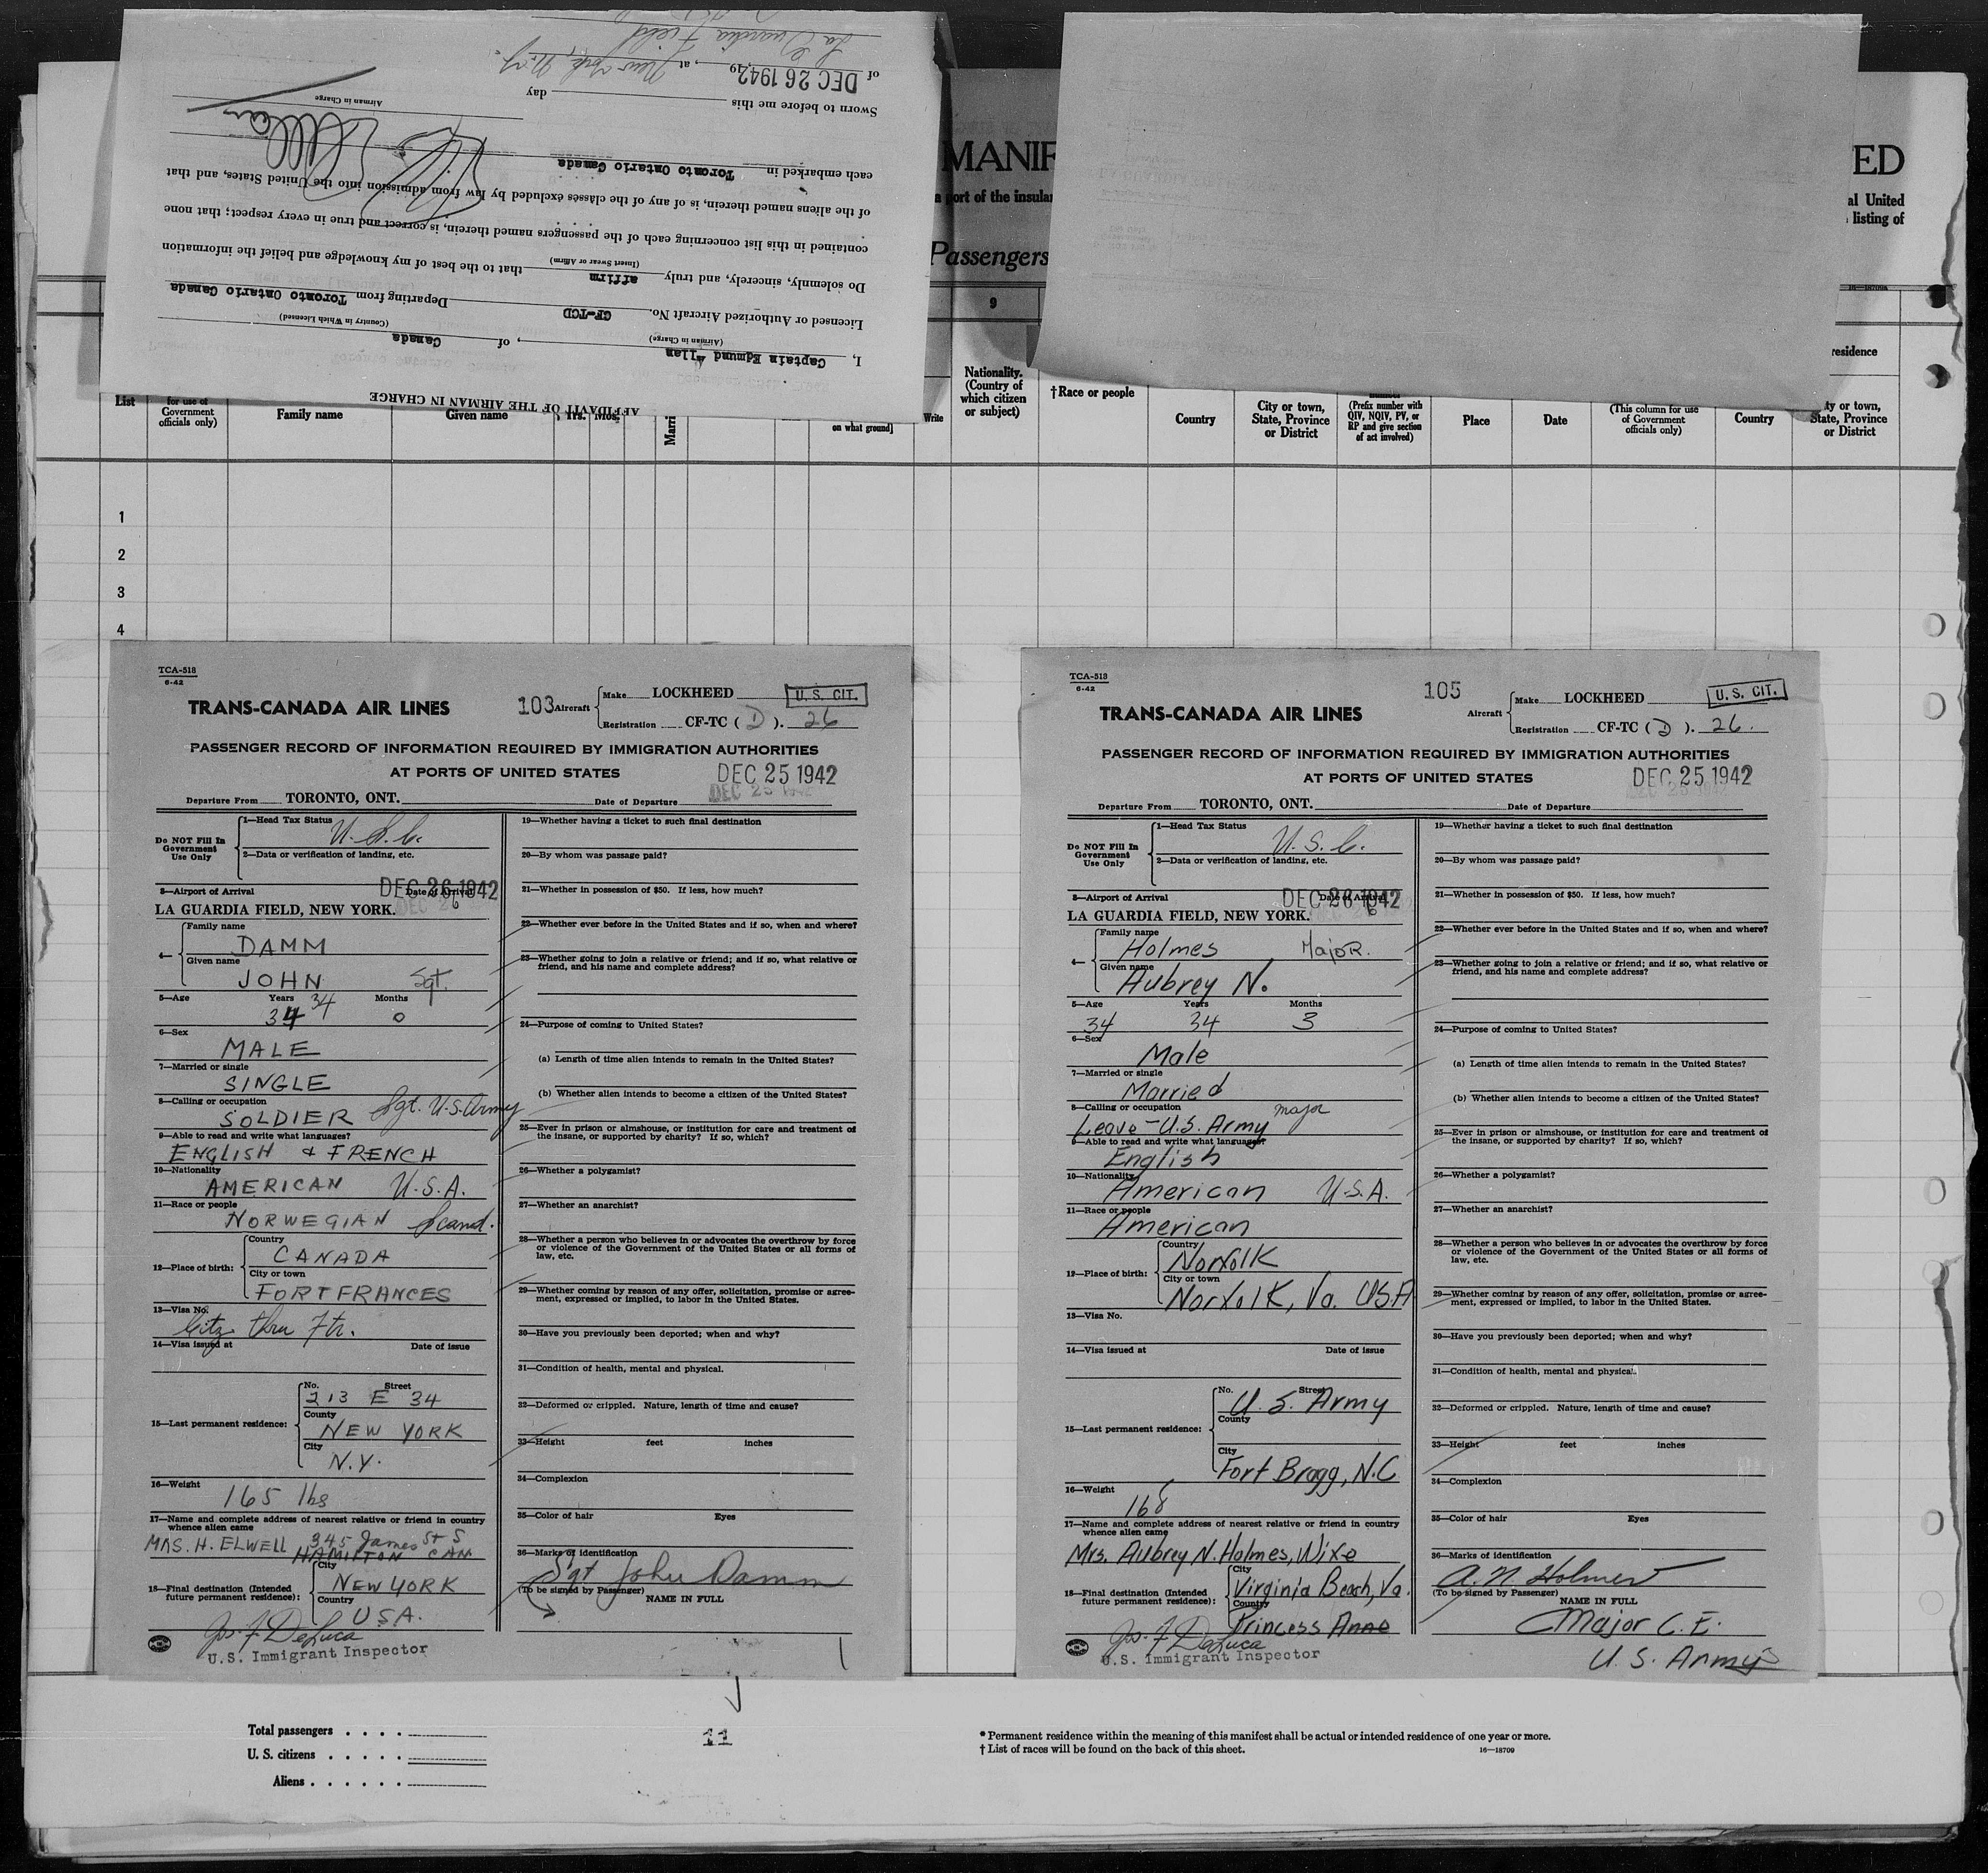 AFFIDAVIT OF THE AIRMAN IN CHARGE
I, Captain Edmund Allan, of Canada
(Airman in Charge) (Country in Which Licensed)
Licensed or Authorized Aircraft No. CF-TCD Departing from Toronto Ontario Canada
Do solemnly, sincerely, and truly affirm that to the best of my knowledge and belief the information
(Insert Swear or Affirm)
contained in this list concerning each of the passengers named therein, is correct and true in every respect; that none
of the aliens named therein, is of any of the classes excluded by law from admission into the United States, and that
each embarked in Toronto Ontario Canada
Airman in Charge
Sworn to before me this day
of DEC 26 1942 19 , at New York N.Y.
La Guardia Field
MANIF
ED
a port of the insular
al United
listing of
Passengers
9
16-18709
residence
List
for use of
Government
officials only)
Family name
Given name
Yrs.
Mos.
Marri
on what ground]
Write
Nationality.
(Country of
which citizen
or subject)
†Race or people
Country
City or town,
State, Province
or District
number
(Prefix number with
QIV, NQIV, PV, or
RP and give section
of act involved)
Place
Date
(This column for use
of Government
officials only)
Country
City or town,
State, Province
or District
1
2
3
4
TCA-518
6-42
TRANS-CANADA AIR LINES
103
Aircraft
Make LOCKHEED
U. S. CIT.
Registration CF-TC ( D ). 26
PASSENGER RECORD OF INFORMATION REQUIRED BY IMMIGRATION AUTHORITIES
AT PORTS OF UNITED STATES
DEC 25 1942
Departure From TORONTO, ONT. Date of Departure
Do NOT Fill In
Government
Use Only
1—Head Tax Status
U.S.C.
2—Data or verification of landing, etc.
3—Airport of Arrival Date of Arrival
DEC 26 1942
LA GUARDIA FIELD, NEW YORK.
4—
Family name
DAMM
Given name
JOHN Sgt.
5—Age Years Months
34 34 0
6—Sex
MALE
7—Married or single
SINGLE
8—Calling or occupation
SOLDIER Sgt. U.S. Army
9—Able to read and write what languages?
ENGLISH & FRENCH
10—Nationality
AMERICAN U.S.A.
11—Race or people
NORWEGIAN Scand.
12—Place of birth:
Country
CANADA
City or town
FORT FRANCES
13—Visa No.
Citz thru Ftr.
14—Visa issued at Date of issue
15—Last permanent residence:
No. Street
213 E 34
County
NEW YORK
City
N.Y.
16—Weight
165 lbs
17—Name and complete address of nearest relative or friend in country
whence alien came
MRS. H. ELWELL 345 James St S
HAMILTON CAN
18—Final destination (Intended
future permanent residence):
City
NEW YORK
Country
USA.
Jos. F. DeLuca
U.S. Immigrant Inspector
19—Whether having a ticket to such final destination
20—By whom was passage paid?
21—Whether in possession of $50. If less, how much?
22—Whether ever before in the United States and if so, when and where?
23—Whether going to join a relative or friend; and if so, what relative or
friend, and his name and complete address?
24—Purpose of coming to United States?
(a) Length of time alien intends to remain in the United States?
(b) Whether alien intends to become a citizen of the United States?
25—Ever in prison or almshouse, or institution for care and treatment of
the insane, or supported by charity? If so, which?
26—Whether a polygamist?
27—Whether an anarchist?
28—Whether a person who believes in or advocates the overthrow by force
or violence of the Government of the United States or all forms of
law, etc.
29—Whether coming by reason of any offer, solicitation, promise or agree-
ment, expressed or implied, to labor in the United States.
30—Have you previously been deported; when and why?
31—Condition of health, mental and physical.
32—Deformed or crippled. Nature, length of time and cause?
33—Height feet inches
34—Complexion
35—Color of hair Eyes
36—Marks of identification
Sgt John Damm
(To be signed by Passenger)
NAME IN FULL
TCA-518
6-42
TRANS-CANADA AIR LINES
105
Aircraft
Make LOCKHEED
U. S. CIT.
Registration CF-TC ( D ). 26.
PASSENGER RECORD OF INFORMATION REQUIRED BY IMMIGRATION AUTHORITIES
AT PORTS OF UNITED STATES
DEC 25 1942
Departure From TORONTO, ONT. Date of Departure
Do NOT Fill In
Government
Use Only
1—Head Tax Status
U.S.C.
2—Data or verification of landing, etc.
3—Airport of Arrival Date of Arrival
DEC 26 1942
LA GUARDIA FIELD, NEW YORK.
4—
Family name
Holmes Major.
Given name
Aubrey N.
5—Age Years Months
34 34 3
6—Sex
Male
7—Married or single
Married
8—Calling or occupation
Leave - U.S. Army major
9—Able to read and write what languages?
English
10—Nationality
American U.S.A.
11—Race or people
American
12—Place of birth:
Country
Norfolk
City or town
Norfolk, Va. USA
13—Visa No.
14—Visa issued at Date of issue
15—Last permanent residence:
No. Street
U.S. Army
County
City
Fort Bragg, N.C
16—Weight
168
17—Name and complete address of nearest relative or friend in country
whence alien came
Mrs. Aubrey N. Holmes, Wife
18—Final destination (Intended
future permanent residence):
City
Virginia Beach, Va.
Country
Princess Anne
Jos. F. DeLuca
U.S. Immigrant Inspector
19—Whether having a ticket to such final destination
20—By whom was passage paid?
21—Whether in possession of $50. If less, how much?
22—Whether ever before in the United States and if so, when and where?
23—Whether going to join a relative or friend; and if so, what relative or
friend, and his name and complete address?
24—Purpose of coming to United States?
(a) Length of time alien intends to remain in the United States?
(b) Whether alien intends to become a citizen of the United States?
25—Ever in prison or almshouse, or institution for care and treatment of
the insane, or supported by charity? If so, which?
26—Whether a polygamist?
27—Whether an anarchist?
28—Whether a person who believes in or advocates the overthrow by force
or violence of the Government of the United States or all forms of
law, etc.
29—Whether coming by reason of any offer, solicitation, promise or agree-
ment, expressed or implied, to labor in the United States.
30—Have you previously been deported; when and why?
31—Condition of health, mental and physical.
32—Deformed or crippled. Nature, length of time and cause?
33—Height feet inches
34—Complexion
35—Color of hair Eyes
36—Marks of identification
A.N. Holmes
(To be signed by Passenger)
NAME IN FULL
Major C.E.
U.S. Army
Total passengers . . . .
U. S. citizens . . . . .
Aliens . . . . . .
11
* Permanent residence within the meaning of this manifest shall be actual or intended residence of one year or more.
† List of races will be found on the back of this sheet.
16—18709